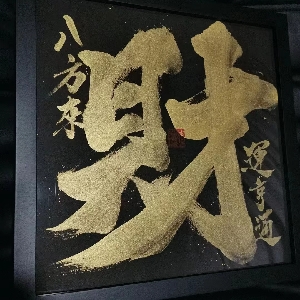 八方來
財
運亨通